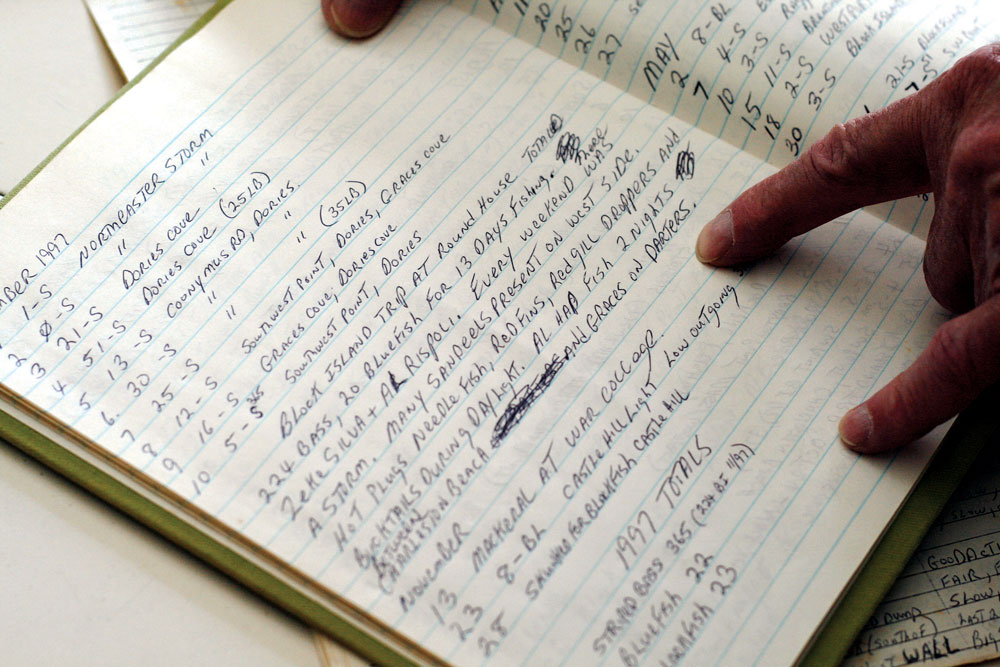 MBER 1997
1-S NORTHEASTER STORM
2 0-S " "
3 21-S DORIES COVE (25LB)
4 51-S DORIES COVE
5 13-S COONYMUS RD, DORIES.
6 30-S " "
7 25-S " " (35LB)
8 12-S SOUTHWEST POINT, DORIES, GRACES COVE
9 16-S GRACES COVE, DORIES COVE
10 5-S SOUTHWEST POINT, DORIES
BLOCK ISLAND TRIP AT ROUND HOUSE TOTALED
224 BASS, 20 BLUEFISH FOR 13 DAYS FISHING.
ZEKE SILVA + AL RISPOLI. EVERY WEEKEND WAS
A STORM. MANY SANDEELS PRESENT ON WEST SIDE.
HOT PLUGS NEEDLEFISH, REDFINS, REDGILL DROPPERS AND
BUCKTAILS DURING DAYLIGHT. AL HAD FISH 2 NIGHTS
BETWEEN
CHARLESTON BEACH AND GRACES ON DARTERS.
NOVEMBER
13 MACKERAL AT WAR COLLAGE.
23 8-BL CASTLE HILL LIGHT LOW OUTGOING
28 CASTLE HILL
1997 TOTALS
STRIPED BASS 365 (224 BI 11/97)
BLUEFISH 22
23
11
20
25
26
27
MAY
2 8-BL
7 4-S
10 3-S
15 11-S
18 2-S
30 3-S BLOCK ISLAND
21-S
7-S
GOOD ACT
FAIR,
SLOW,
DUMP
(SOUTH OF) LAST 2
WALL BIG